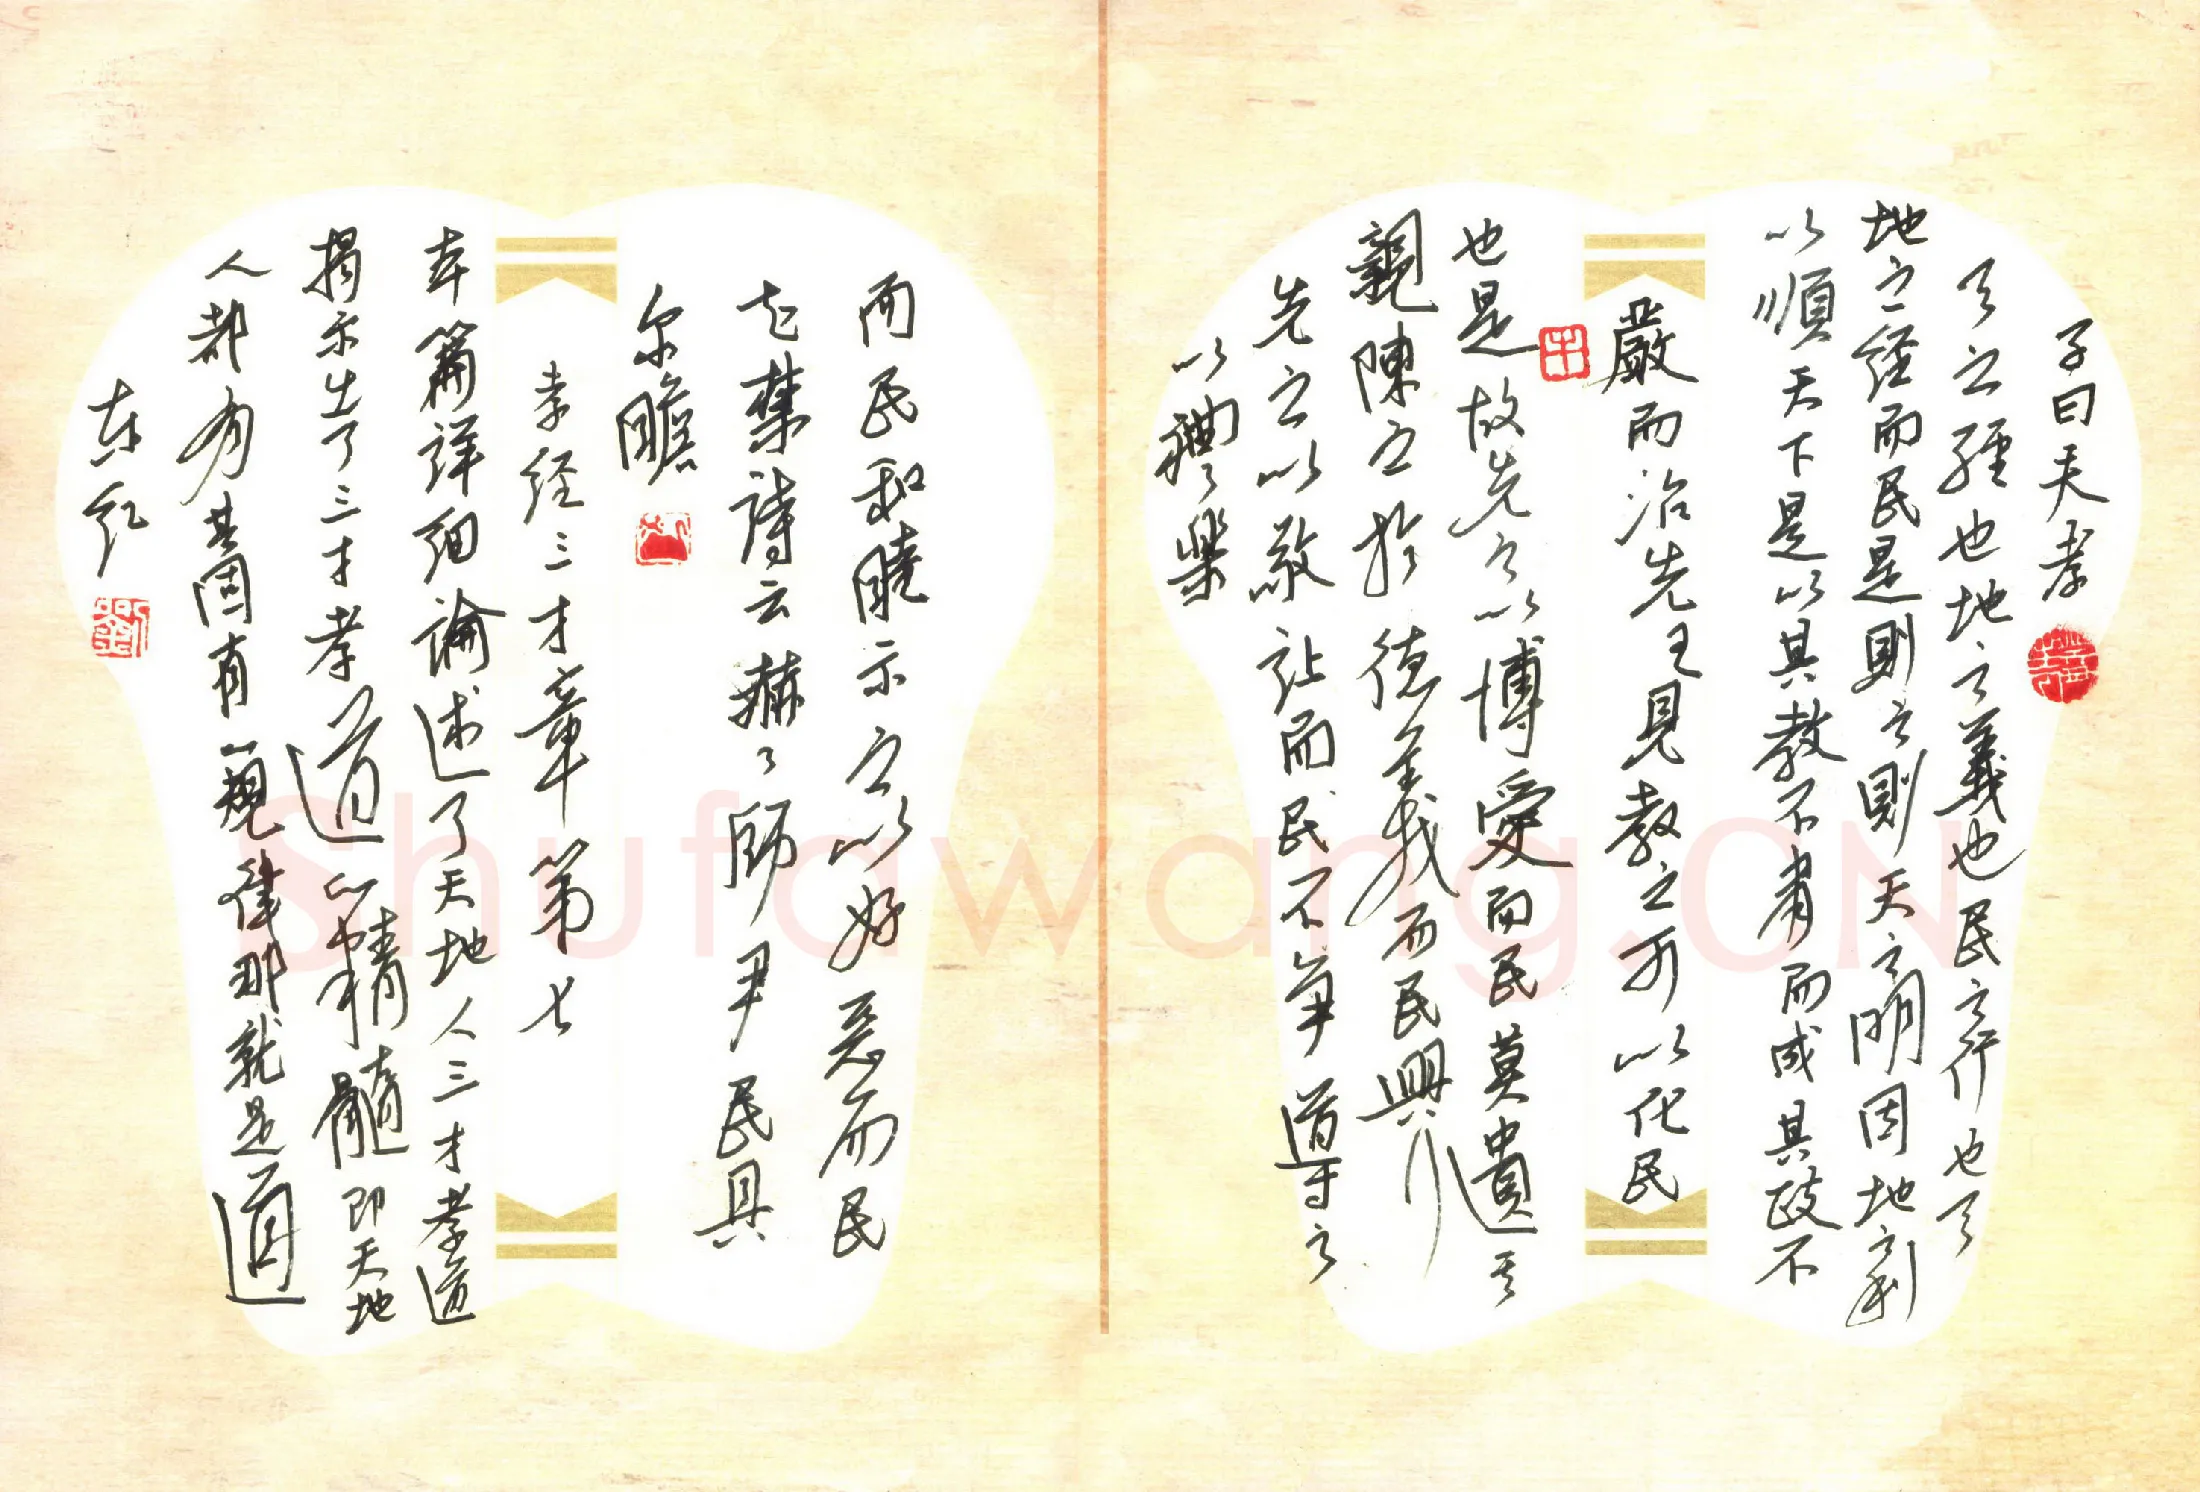 子曰夫孝
天之經也地之義也民之行也天
地之经而民是則之則天之明因地之利
以順天下是以其教不肅而成其政不
嚴而治先王見教之可以化民
也是故先之以博愛而民莫遺其
親陳之於德義而民興行
先之以敬让而民不争導之
以禮樂
而民和睦示之以好惡而民
知禁詩云赫々師尹民具
尔瞻
孝经三才章第七
本篇详细論述了天地人三才孝道
揭示出了三才孝道的精髓即天地
人都有其固有的规律那就是道
东红
Shufawang.CN